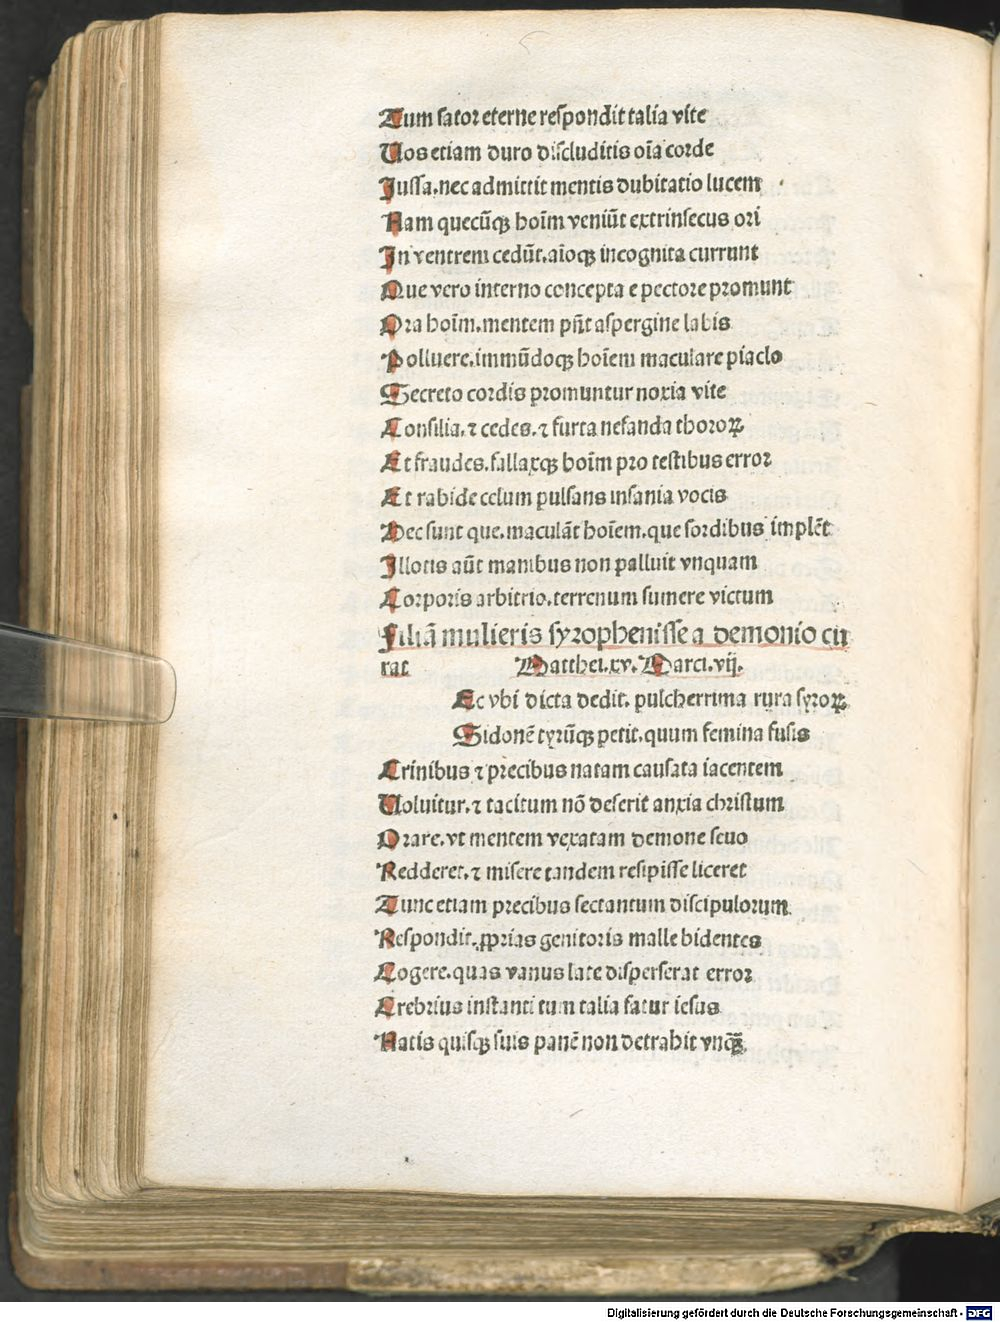 Tum sator eterne respondit talia vite
Uos etiam duro discluditis oīa corde
Jussa, nec admittit mentis dubitatio lucem
Nam quecūqꝫ hoīm veniūt extrinsecus ori
In ventrem cedūt, aīoqꝫ incognita currunt
Que vero interno concepta e pectore promunt
Ora hoīm, mentem pn̄t aspergine labis
Polluere, immūdoqꝫ hoīem maculare piaclo
Secreto cordis promuntur noxia vite
Consilia, ⁊ cedes, ⁊ furta nefanda thoroꝝ
Et fraudes, fallaxqꝫ hoīm pro testibus error
Et rabide celum pulsans insania vocis
Hec sunt que, maculāt hoīem, que sordibus implēt
Illotis aūt manibus non palluit vnquam
Corporis arbitrio, terrenum sumere victum
Filiā mulieris syrophenisse a demonio cu
rat Matthei. xv. Marci. vij.
Ec vbi dicta dedit, pulcherrima rura syroꝝ
Sidonē tyrūqꝫ petit, quum femina fusis
Crinibus ⁊ precibus natam causata iacentem
Uoluitur, ⁊ tacitum nō deserit anxia christum
Orare, vt mentem vexatam demone seuo
Redderet, ⁊ misere tandem resipisse liceret
Tunc etiam precibus sectantum discipulorum
Respondit, ꝓprias genitoris malle bidentes
Cogere, quas vanus late disperserat error
Crebrius instanti tum talia fatur iesus
Natis quisqꝫ suis panē non detrahit vnqᷓꝫ
Digitalisierung gefördert durch die Deutsche Forschungsgemeinschaft - DFG